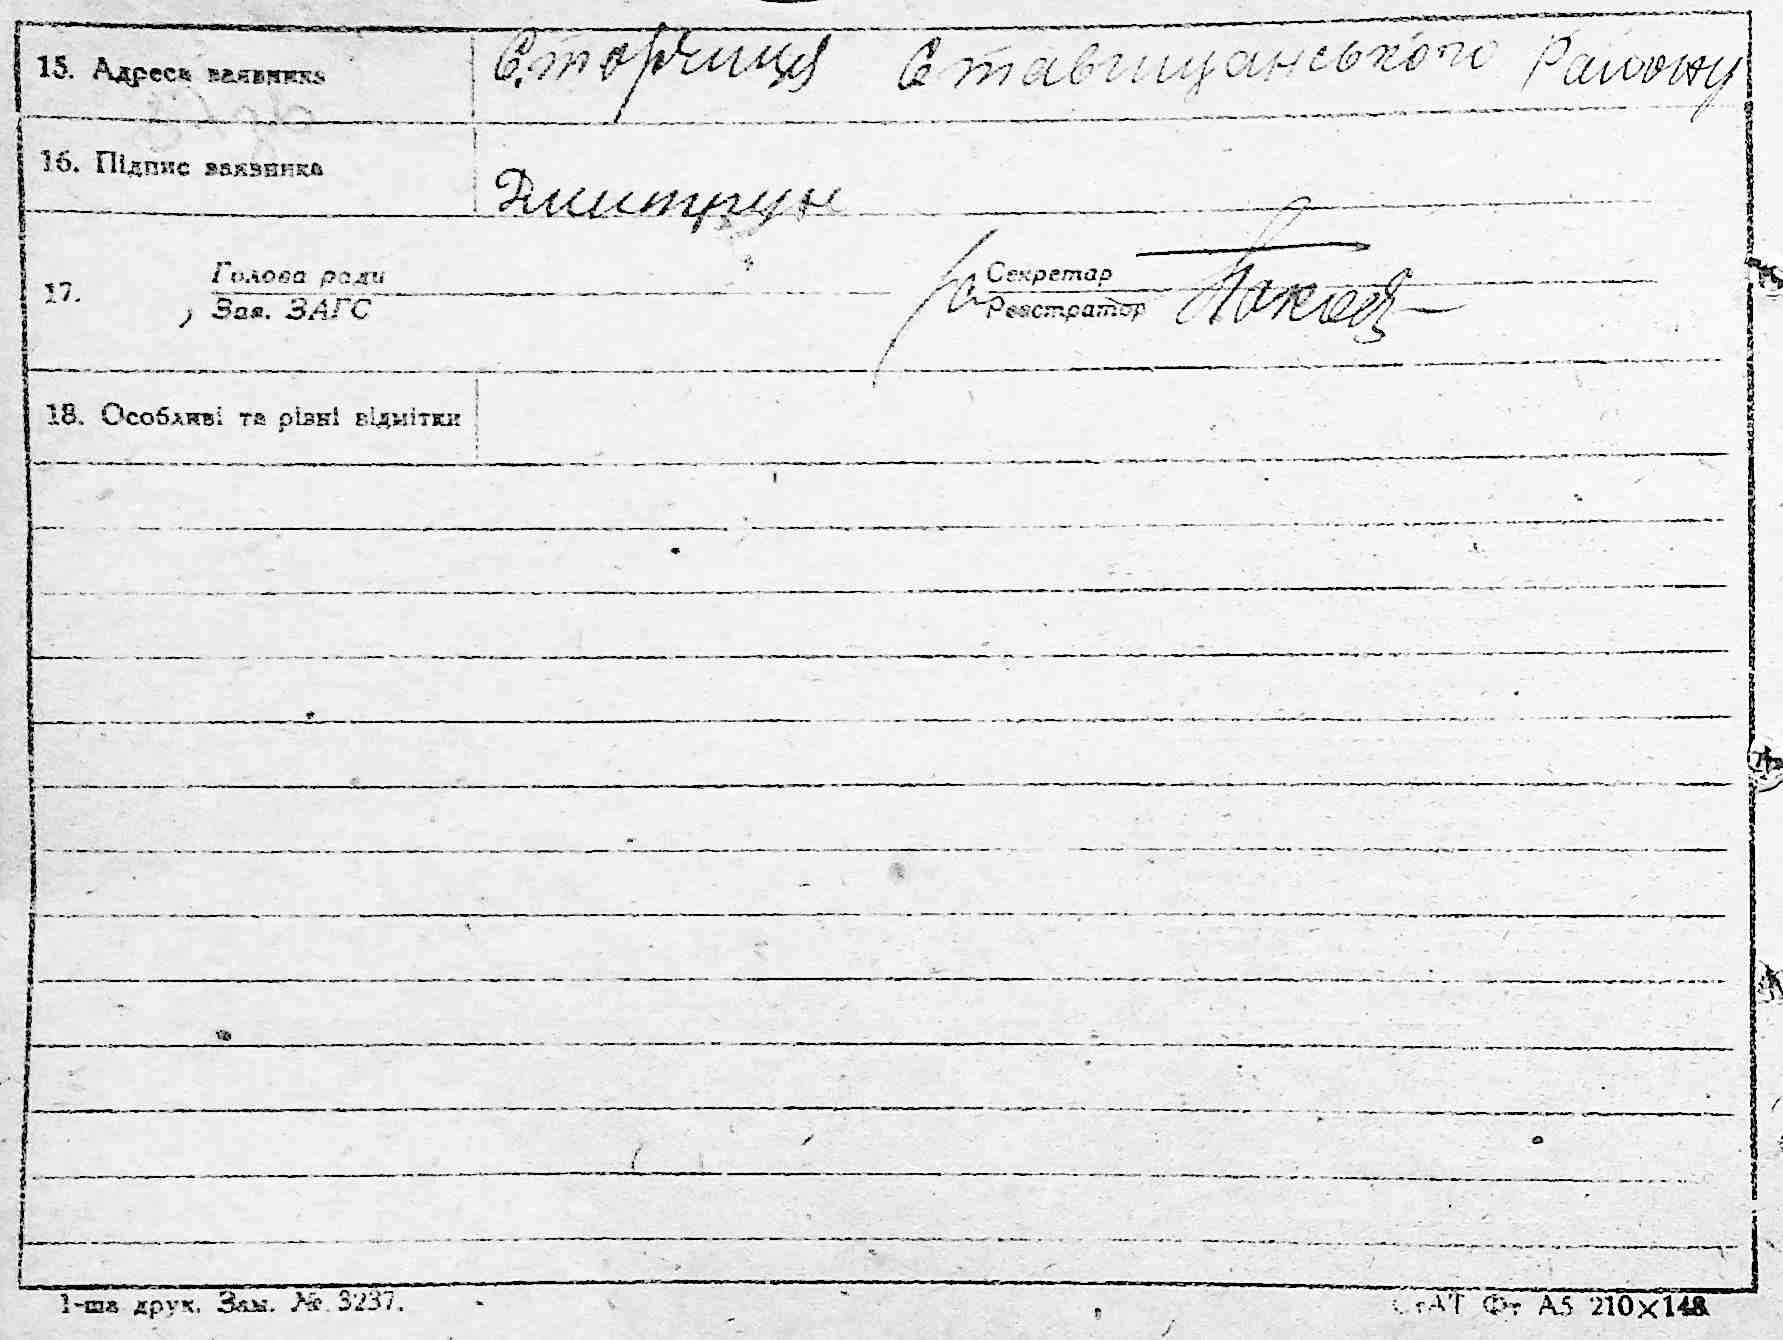 15. Адреса заявника Сторчиця Ставищанського Району
16. Підпис заявника Дмитрун
17. Голова ради Секретар
Зав. ЗАГС Реєстратор
18. Особливі та різні відмітки
1-ша друк. Зам. № 3237. СтАТ Фт А5 210×148